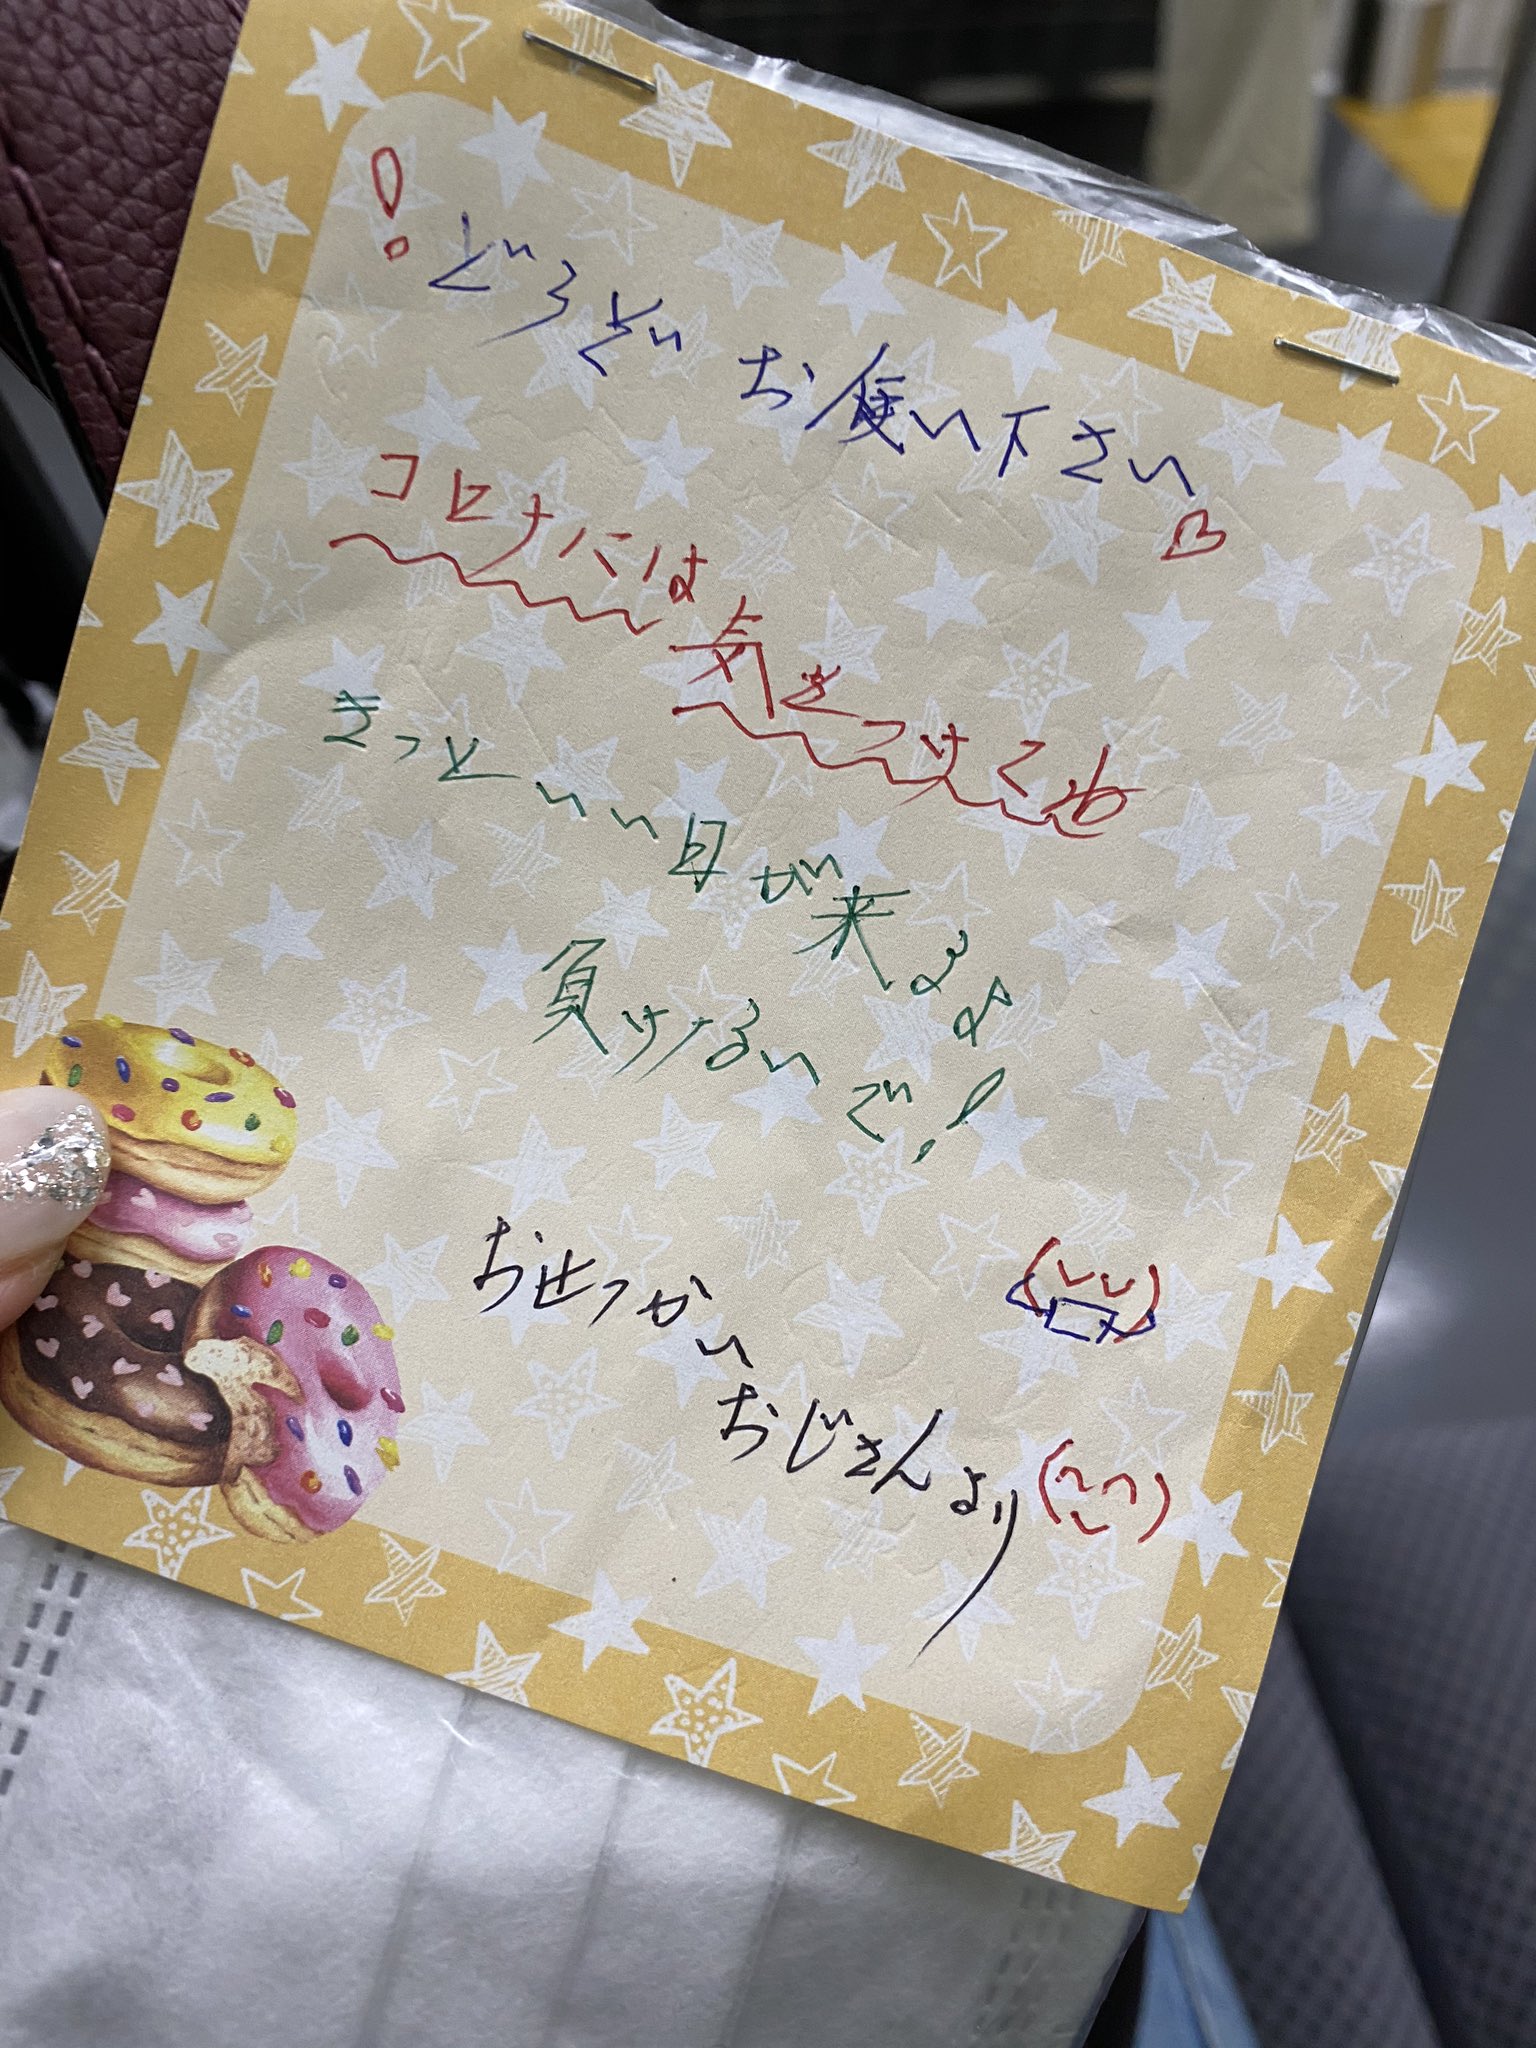 ! どうぞ お使い下さい♡
コロナには 気をつけてね
きっと いい日が来るよ
負けないで!
おせっかい
おじさんより